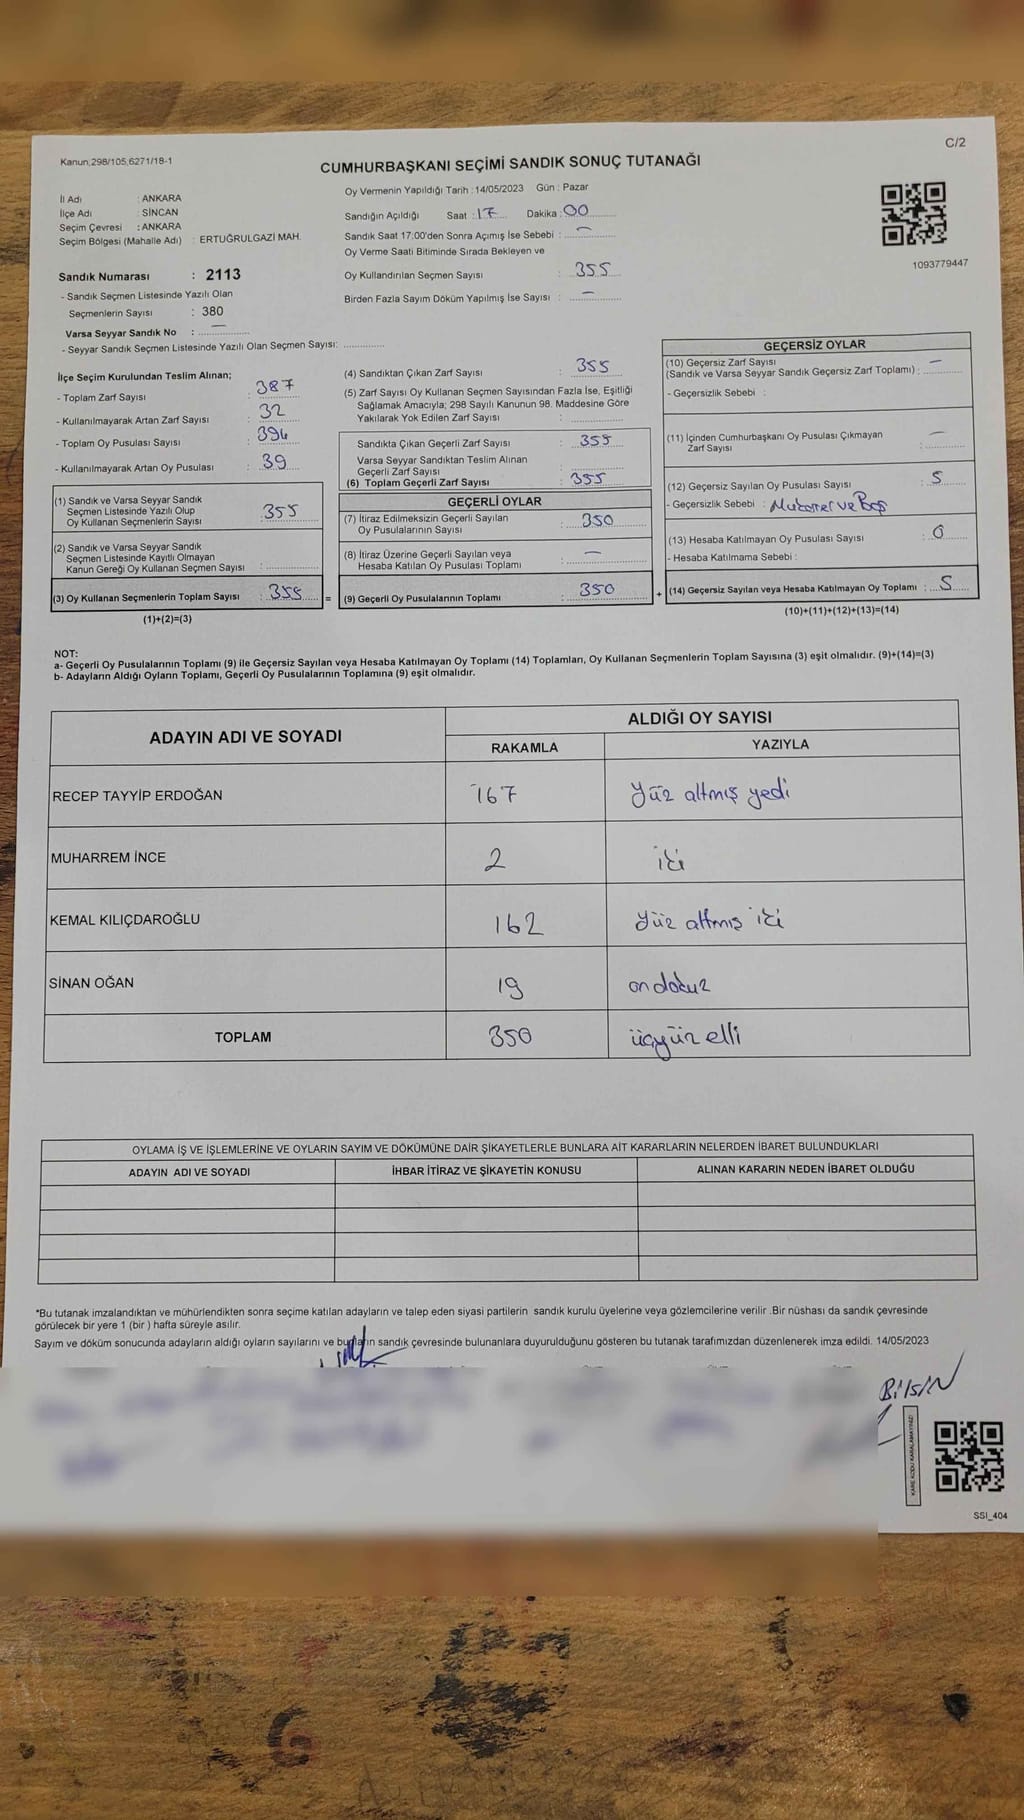 Kanun,298/105,6271/18-1
C/2
CUMHURBAŞKANI SEÇİMİ SANDIK SONUÇ TUTANAĞI
İl Adı : ANKARA
İlçe Adı : SİNCAN
Seçim Çevresi : ANKARA
Seçim Bölgesi (Mahalle Adı) : ERTUĞRULGAZİ MAH.
Sandık Numarası : 2113
- Sandık Seçmen Listesinde Yazılı Olan
Seçmenlerin Sayısı : 380
Varsa Seyyar Sandık No : —
- Seyyar Sandık Seçmen Listesinde Yazılı Olan Seçmen Sayısı:
Oy Vermenin Yapıldığı Tarih : 14/05/2023 Gün : Pazar
Sandığın Açıldığı Saat : 17 Dakika : 00
Sandık Saat 17:00'den Sonra Açımış İse Sebebi : —
Oy Verme Saati Bitiminde Sırada Bekleyen ve
Oy Kullandırılan Seçmen Sayısı : 355
Birden Fazla Sayım Döküm Yapılmış İse Sayısı : —
1093779447
İlçe Seçim Kurulundan Teslim Alınan;
- Toplam Zarf Sayısı : 387
- Kullanılmayarak Artan Zarf Sayısı : 32
- Toplam Oy Pusulası Sayısı : 394
- Kullanılmayarak Artan Oy Pusulası : 39
(1) Sandık ve Varsa Seyyar Sandık
Seçmen Listesinde Yazılı Olup
Oy Kullanan Seçmenlerin Sayısı : 355
(2) Sandık ve Varsa Seyyar Sandık
Seçmen Listesinde Kayıtlı Olmayan
Kanun Gereği Oy Kullanan Seçmen Sayısı :
(3) Oy Kullanan Seçmenlerin Toplam Sayısı : 355 =
(1)+(2)=(3)
(4) Sandıktan Çıkan Zarf Sayısı : 355
(5) Zarf Sayısı Oy Kullanan Seçmen Sayısından Fazla İse, Eşitliği
Sağlamak Amacıyla; 298 Sayılı Kanunun 98. Maddesine Göre
Yakılarak Yok Edilen Zarf Sayısı :
Sandıkta Çıkan Geçerli Zarf Sayısı : 355
Varsa Seyyar Sandıktan Teslim Alınan
Geçerli Zarf Sayısı :
(6) Toplam Geçerli Zarf Sayısı : 355
GEÇERLİ OYLAR
(7) İtiraz Edilmeksizin Geçerli Sayılan
Oy Pusulalarının Sayısı : 350
(8) İtiraz Üzerine Geçerli Sayılan veya
Hesaba Katılan Oy Pusulası Toplamı : —
(9) Geçerli Oy Pusulalarının Toplamı : 350 +
GEÇERSİZ OYLAR
(10) Geçersiz Zarf Sayısı
(Sandık ve Varsa Seyyar Sandık Geçersiz Zarf Toplamı) : —
- Geçersizlik Sebebi :
(11) İçinden Cumhurbaşkanı Oy Pusulası Çıkmayan
Zarf Sayısı : —
(12) Geçersiz Sayılan Oy Pusulası Sayısı : 5
- Geçersizlik Sebebi : ve Boş
(13) Hesaba Katılmayan Oy Pusulası Sayısı : 0
- Hesaba Katılmama Sebebi :
(14) Geçersiz Sayılan veya Hesaba Katılmayan Oy Toplamı : 5
(10)+(11)+(12)+(13)=(14)
NOT:
a- Geçerli Oy Pusulalarının Toplamı (9) ile Geçersiz Sayılan veya Hesaba Katılmayan Oy Toplamı (14) Toplamları, Oy Kullanan Seçmenlerin Toplam Sayısına (3) eşit olmalıdır. (9)+(14)=(3)
b- Adayların Aldığı Oyların Toplamı, Geçerli Oy Pusulalarının Toplamına (9) eşit olmalıdır.
ADAYIN ADI VE SOYADI
ALDIĞI OY SAYISI
RAKAMLA YAZIYLA
RECEP TAYYİP ERDOĞAN 167 Yüz altmış yedi
MUHARREM İNCE 2 iki
KEMAL KILIÇDAROĞLU 162 Yüz altmış iki
SİNAN OĞAN 19 on dokuz
TOPLAM 350 üçyüz elli
OYLAMA İŞ VE İŞLEMLERİNE VE OYLARIN SAYIM VE DÖKÜMÜNE DAİR ŞİKAYETLERLE BUNLARA AİT KARARLARIN NELERDEN İBARET BULUNDUKLARI
ADAYIN ADI VE SOYADI İHBAR İTİRAZ VE ŞİKAYETİN KONUSU ALINAN KARARIN NEDEN İBARET OLDUĞU
*Bu tutanak imzalandıktan ve mühürlendikten sonra seçime katılan adayların ve talep eden siyasi partilerin sandık kurulu üyelerine veya gözlemcilerine verilir .Bir nüshası da sandık çevresinde
görülecek bir yere 1 (bir ) hafta süreyle asılır.
Sayım ve döküm sonucunda adayların aldığı oyların sayılarını ve bunların sandık çevresinde bulunanlara duyurulduğunu gösteren bu tutanak tarafımızdan düzenlenerek imza edildi. 14/05/2023
BilsiN
KARE KODU KARALAMAYINIZ!
SSI_404